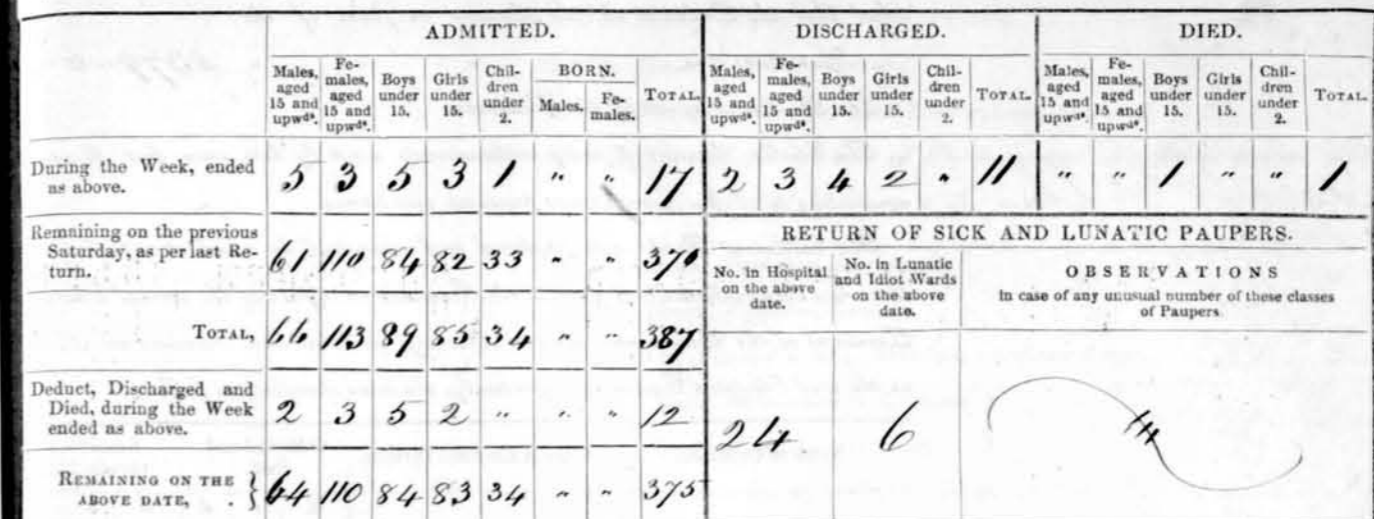 ADMITTED. DISCHARGED. DIED.
Males, aged 15 and upwds. Fe-males, aged 15 and upwds. Boys under 15. Girls under 15. Chil-dren under 2. BORN. Males. Fe-males. TOTAL. Males, aged 15 and upwds. Fe-males, aged 15 and upwds. Boys under 15. Girls under 15. Chil-dren under 2. TOTAL. Males, aged 15 and upwds. Fe-males, aged 15 and upwds. Boys under 15. Girls under 15. Chil-dren under 2. TOTAL.
During the Week, ended as above. 5 3 5 3 1 " " 17 2 3 4 2 " 11 " " 1 " " 1
Remaining on the previous Saturday, as per last Re-turn. 61 110 84 82 33 " " 370
TOTAL, 66 113 89 85 34 " " 387
Deduct, Discharged and Died, during the Week ended as above. 2 3 5 2 " " " 12
REMAINING ON THE ABOVE DATE, . } 64 110 84 83 34 " " 375
RETURN OF SICK AND LUNATIC PAUPERS.
No. in Hospital on the above date. No. in Lunatic and Idiot Wards on the above date. OBSERVATIONS
in case of any unusual number of these classes of Paupers
24 6